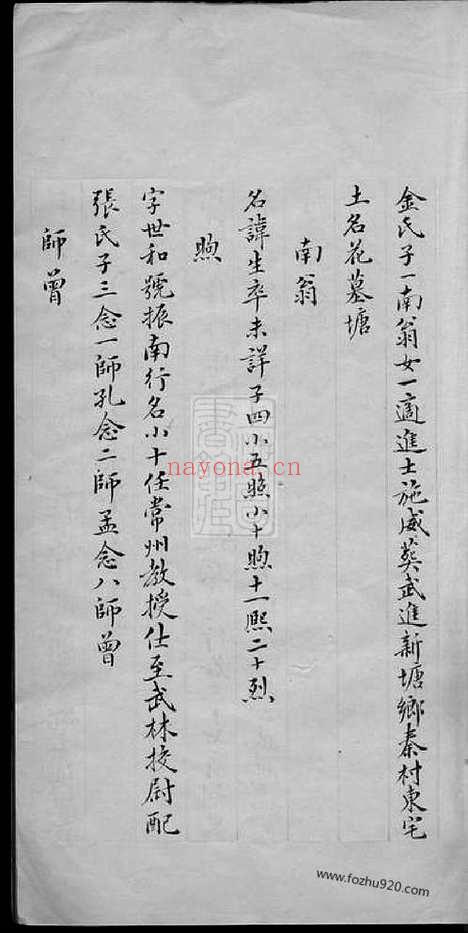 金氏子一南翁女一適進士施威葬武進新塘鄉秦村東宅
土名花墓塘
南翁
名諱生卒未詳子四小五照小十煦十一熙二十烈
煦
字世和號振南行名小十任常州教授仕至武林校尉配
張氏子三念一師孔念二師孟念八師曾
師曾
nayona.cn
www.fozhu920.com